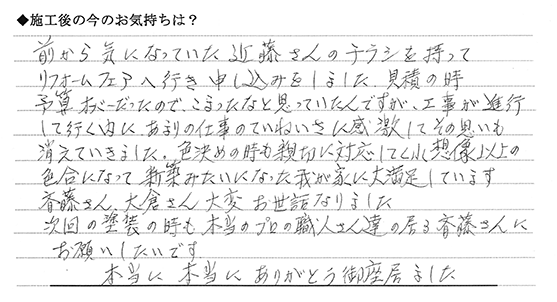 ◆施工後の今のお気持ちは？
前から気になっていた近藤さんのチラシを持って
リフォームフェアへ行き申し込みをしました。見積の時
予算オーバーだったので、こまったなと思っていたんですが、工事が進行
して行く内に、あまりの仕事のていねいさに感激してその思いも
消えていきました。色決めの時も親切に対応してくれ想像以上の
色合になって新築みたいになった我が家に大満足しています
斉藤さん、大倉さん大変お世話なりました
次回の塗装の時も本当のプロの職人さん達の居る斉藤さんに
お願いしたいです
本当に本当にありがとう御座居ました